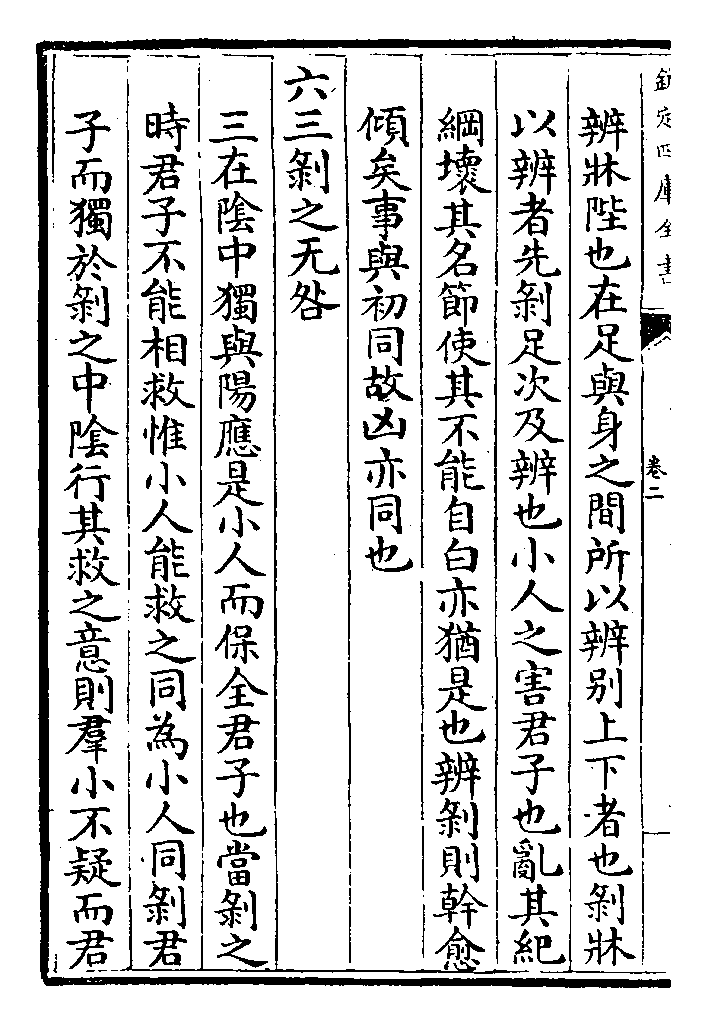 欽定四庫全書
卷二
辨牀陛也在足與身之間所以辨别上下者也剝牀
以辨者先剝足次及辨也小人之害君子也亂其紀
綱壞其名節使其不能自白亦猶是也辨剝則幹愈
傾矣事與初同故凶亦同也
六三剝之无咎
三在陰中獨與陽應是小人而保全君子也當剝之
時君子不能相救惟小人能救之同為小人同剝君
子而獨於剝之中陰行其救之意則羣小不疑而君